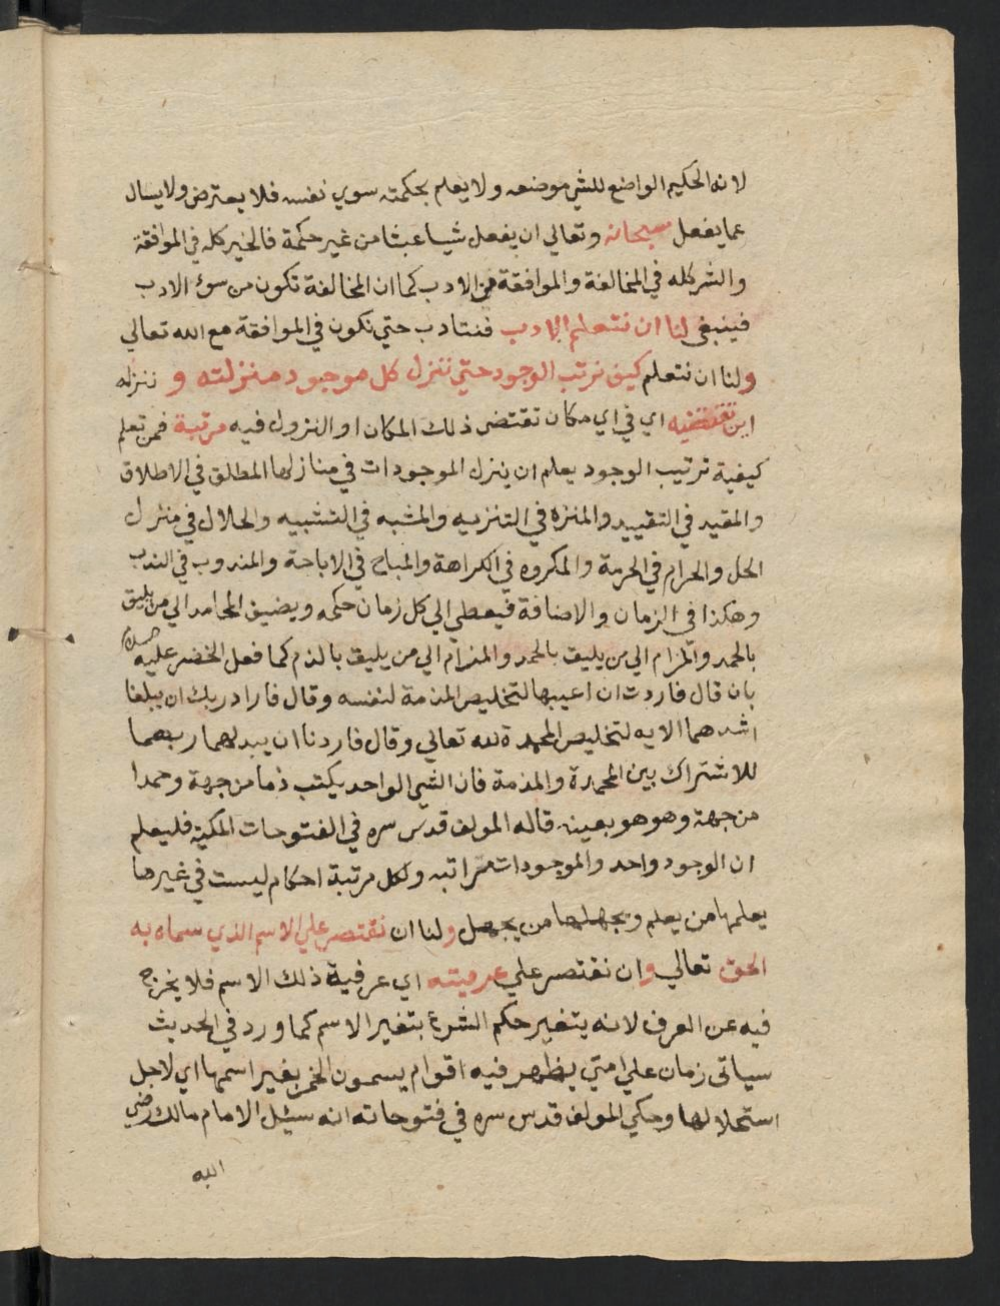 لانه الحكيم الواضع للشي موضعه ولا يعلم بحكمته سوي نفسه فلا يعترض ولا يسال
عما يفعل سبحانه وتعالي ان يفعل شيا عبثا من غير حكمة فالخير كله في الموافقة
والشر كله في المخالفة والموافقة من الادب كما ان المخالفة تكون من سوء الادب
فينبغي لنا ان نتعلم الادب فنتادب حتي نكون في الموافقة مع الله تعالي
ولنا ان نتعلم كيف نرتب الوجود حتي ننزل كل موجود منزلته و ننزله
اين تقتضيه اي في اي مكان تقتضي ذلك المكان او النزول فيه مرتبة فمن تعلم
كيفية ترتيب الوجود يعلم ان ينزل الموجودات في منازلها المطلق في الاطلاق
والمقيد في التقييد والمنزه في التنزيه والمشبه في التشبيه والحلال في منزل
الحل والحرام في الحرمة والمكروه في الكراهة والمباح في الاباحة والمندوب في الندب
وهكذا في الزمان والاضافة فيعطي الي كل زمان حكمه ويضيف المحامد الي من يليق
بالحمد والمزام الي من يليق بالحمد والمذام الي من يليق بالذم كما فعل الخضر عليه السلام
بان قال فاردت ان اعيبها لتخليص المذمة لنفسه وقال فاراد ربك ان يبلغا
اشدهما الايه لتخليص المحمدة لله تعالي وقال فاردنا ان يبدلهما ربهما
للاشتراك بين المحمدة والمذمة فان الشي الواحد يكتب ذما من جهة وحمدا
من جهة وهو هو بعينه قاله المولف قدس سره في الفتوحات المكية فليعلم
ان الوجود واحد والموجودات مراتبه ولكل مرتبة احكام ليست في غيرها
يعلمها من يعلم ويجهلها من يجهل ولنا ان نقتصر علي الاسم الذي سماه به
الحق تعالي وان نقتصر علي عرفيته اي عرفية ذلك الاسم فلا يخرج
فيه عن العرف لانه يتغير حكم الشرع بتغير الاسم كما ورد في الحديث
سياتى زمان علي امتي يظهر فيه اقوام يسمون الخمر بغير اسمها اي لاجل
استحلالها وحكي المولف قدس سره في فتوحاته انه سئل الامام مالك رضي
الله